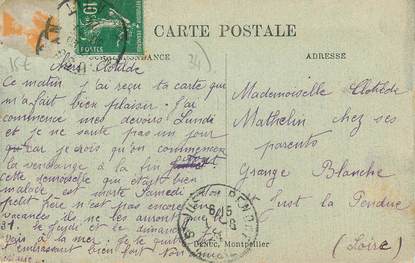 CARTE POSTALE
CORRESPONDANCE
ADRESSE
15E
34
10
POSTES
Chère Clotilde
Ce matin j'ai reçu ta carte que
m'a fait bien plaisir. J'ai
commencé mes devoirs Lundi
et je ne saute pas un jour
car je crois qu'on commencera
la vendange à la fin
cette demoiselle qui était bien
malade est morte Samedi
petit frère n'est pas encore en
vacances ils ne les auront que
le 31. le jeudi et le dimanche
vais à la mer. Je te quitte
t'embrassant bien fort
Mademoiselle Clotilde
Mathelin chez ses
parents
Grange Blanche
Just la Pendue
(Loire)
Montpellier